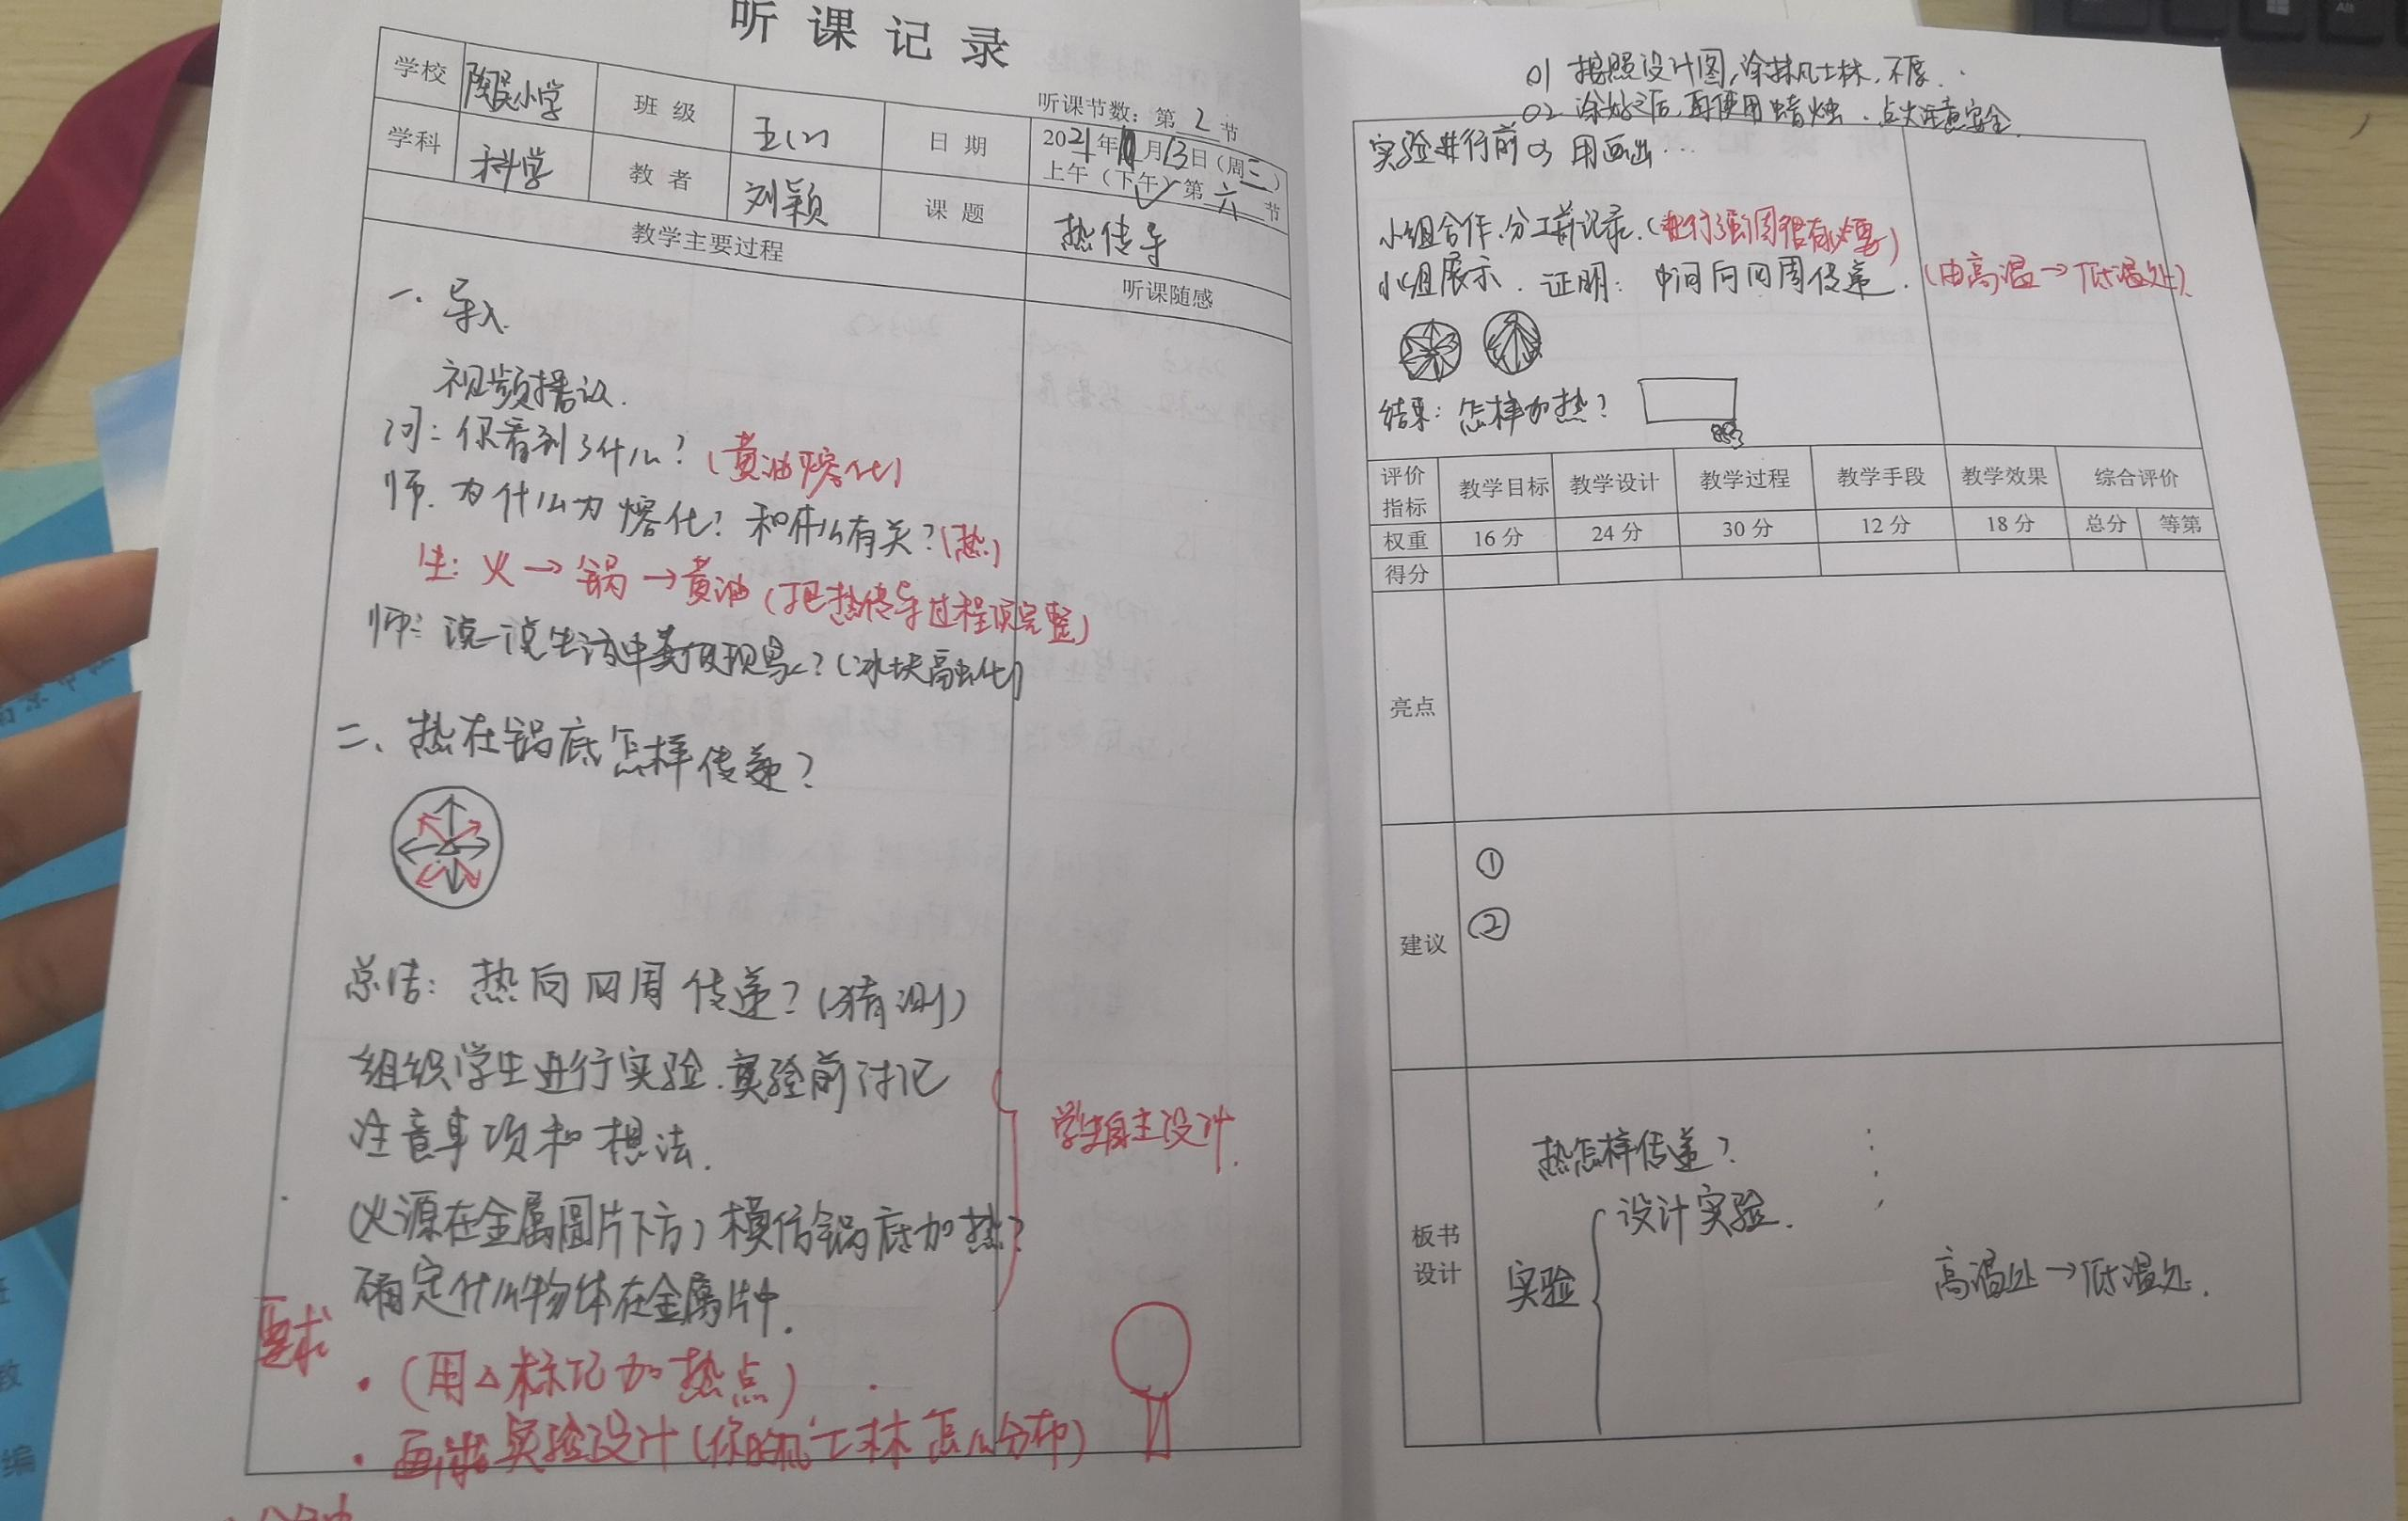 听课记录
听课节数：第2节
学校 陶吴小学 班级 五(2) 日期 2021年10月13日（周三）
上午（下午）✓ 第六节
学科 科学 教者 刘颖 课题 热传导
教学主要过程
听课随感
一. 导入.
视频播放.
问：你看到了什么？（黄油熔化）
师. 为什么为熔化？和什么有关？（热）
生：火→锅→黄油（把热传导过程说完整）
师：说一说生活中类似现象？（冰块融化）
二、热在锅底怎样传递？
总结：热向四周传递？（猜测）
组织学生进行实验. 实验前讨论
注意事项和想法.
（火源在金属圆片下方）模仿锅底加热？
确定什么物体在金属片中.
学生自主设计.
要求
·（用△标记加热点）
· 画出实验设计（你的凡士林怎么分布）
01 按照设计图，涂抹凡士林，不厚.
02 涂好之后，再使用蜡烛. 点火注意安全.
实验进行前 03 用画出…
小组合作，分工前记录.
小组展示. 证明：中间向四周传递.（由高温→低温处）
结束：怎样加热？
评价指标 教学目标 教学设计 教学过程 教学手段 教学效果 综合评价
权重 16分 24分 30分 12分 18分 总分 等第
得分
亮点
建议
①
②
板书设计
热怎样传递？
实验
设计实验.
高温处→低温处.